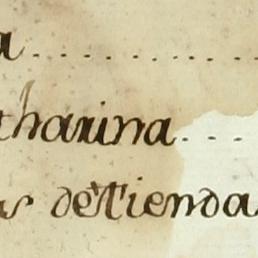 a..........
tharina....
as de Tienda